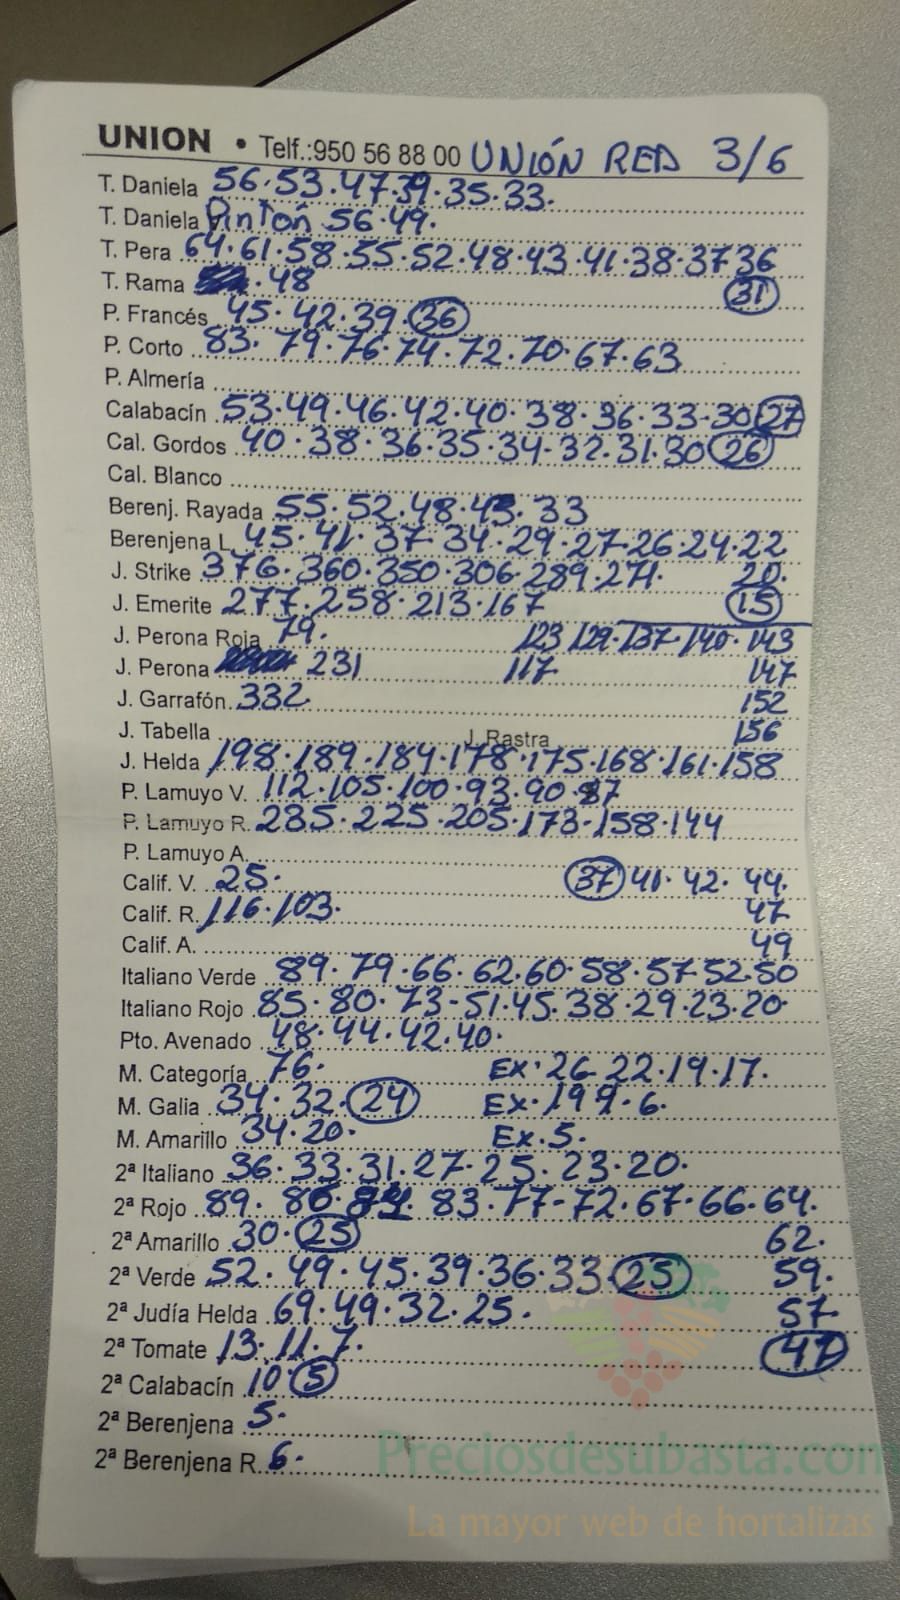 UNION • Telf.:950 56 88 00 UNIÓN RED 3/6
T. Daniela 56.53.47.39.35.33.
T. Daniela Pintón 56.49.
T. Pera 64.61.58.55.52.48.43.41.38.37 36
T. Rama .48 31
P. Francés 45.42.39.36
P. Corto 83.79.76.74.72.70.67.63
P. Almería
Calabacín 53.49.46.42.40.38.36.33-30 27
Cal. Gordos 40.38.36.35.34-32.31.30 26
Cal. Blanco
Berenj. Rayada 55.52.48.43.33
Berenjena L. 45.41.37.34.29.27.26.24.22
J. Strike 376.360.350.306.289.271. 20.
J. Emerite 277.258.213.167 15
J. Perona Roja 79. 123 129.137.140.143
J. Perona 231 117 147
J. Garrafón 332 152
J. Tabella J. Rastra 156
J. Helda 198.189.184.178.175.168.161.158
P. Lamuyo V. 112.105.100.93.90.87
P. Lamuyo R. 235.225.205.173.158.144
P. Lamuyo A.
Calif. V. 25. 37 41.42.44.
Calif. R. 116.103. 47
Calif. A. 49
Italiano Verde 89.79.66.62.60.58.57 52.50
Italiano Rojo 85.80.73-51.45.38.29.23.20
Pto. Avenado 48.44.42.40.
M. Categoría 76. Ex.26 22.19.17.
M. Galia 34.32.24 Ex.19 9.6.
M. Amarillo 34.20. Ex.5.
2ª Italiano 36.33.31.27.25.23.20.
2ª Rojo 89. 83.77-72.67.66.64.
2ª Amarillo 30.25 62.
2ª Verde 52.49.45.39.36.33.25 59.
2ª Judía Helda 69.49.32.25. 57
2ª Tomate 13.11.7. 47
2ª Calabacín 10.5
2ª Berenjena 5.
2ª Berenjena R. 6.
Preciosdesubasta.com
La mayor web de hortalizas